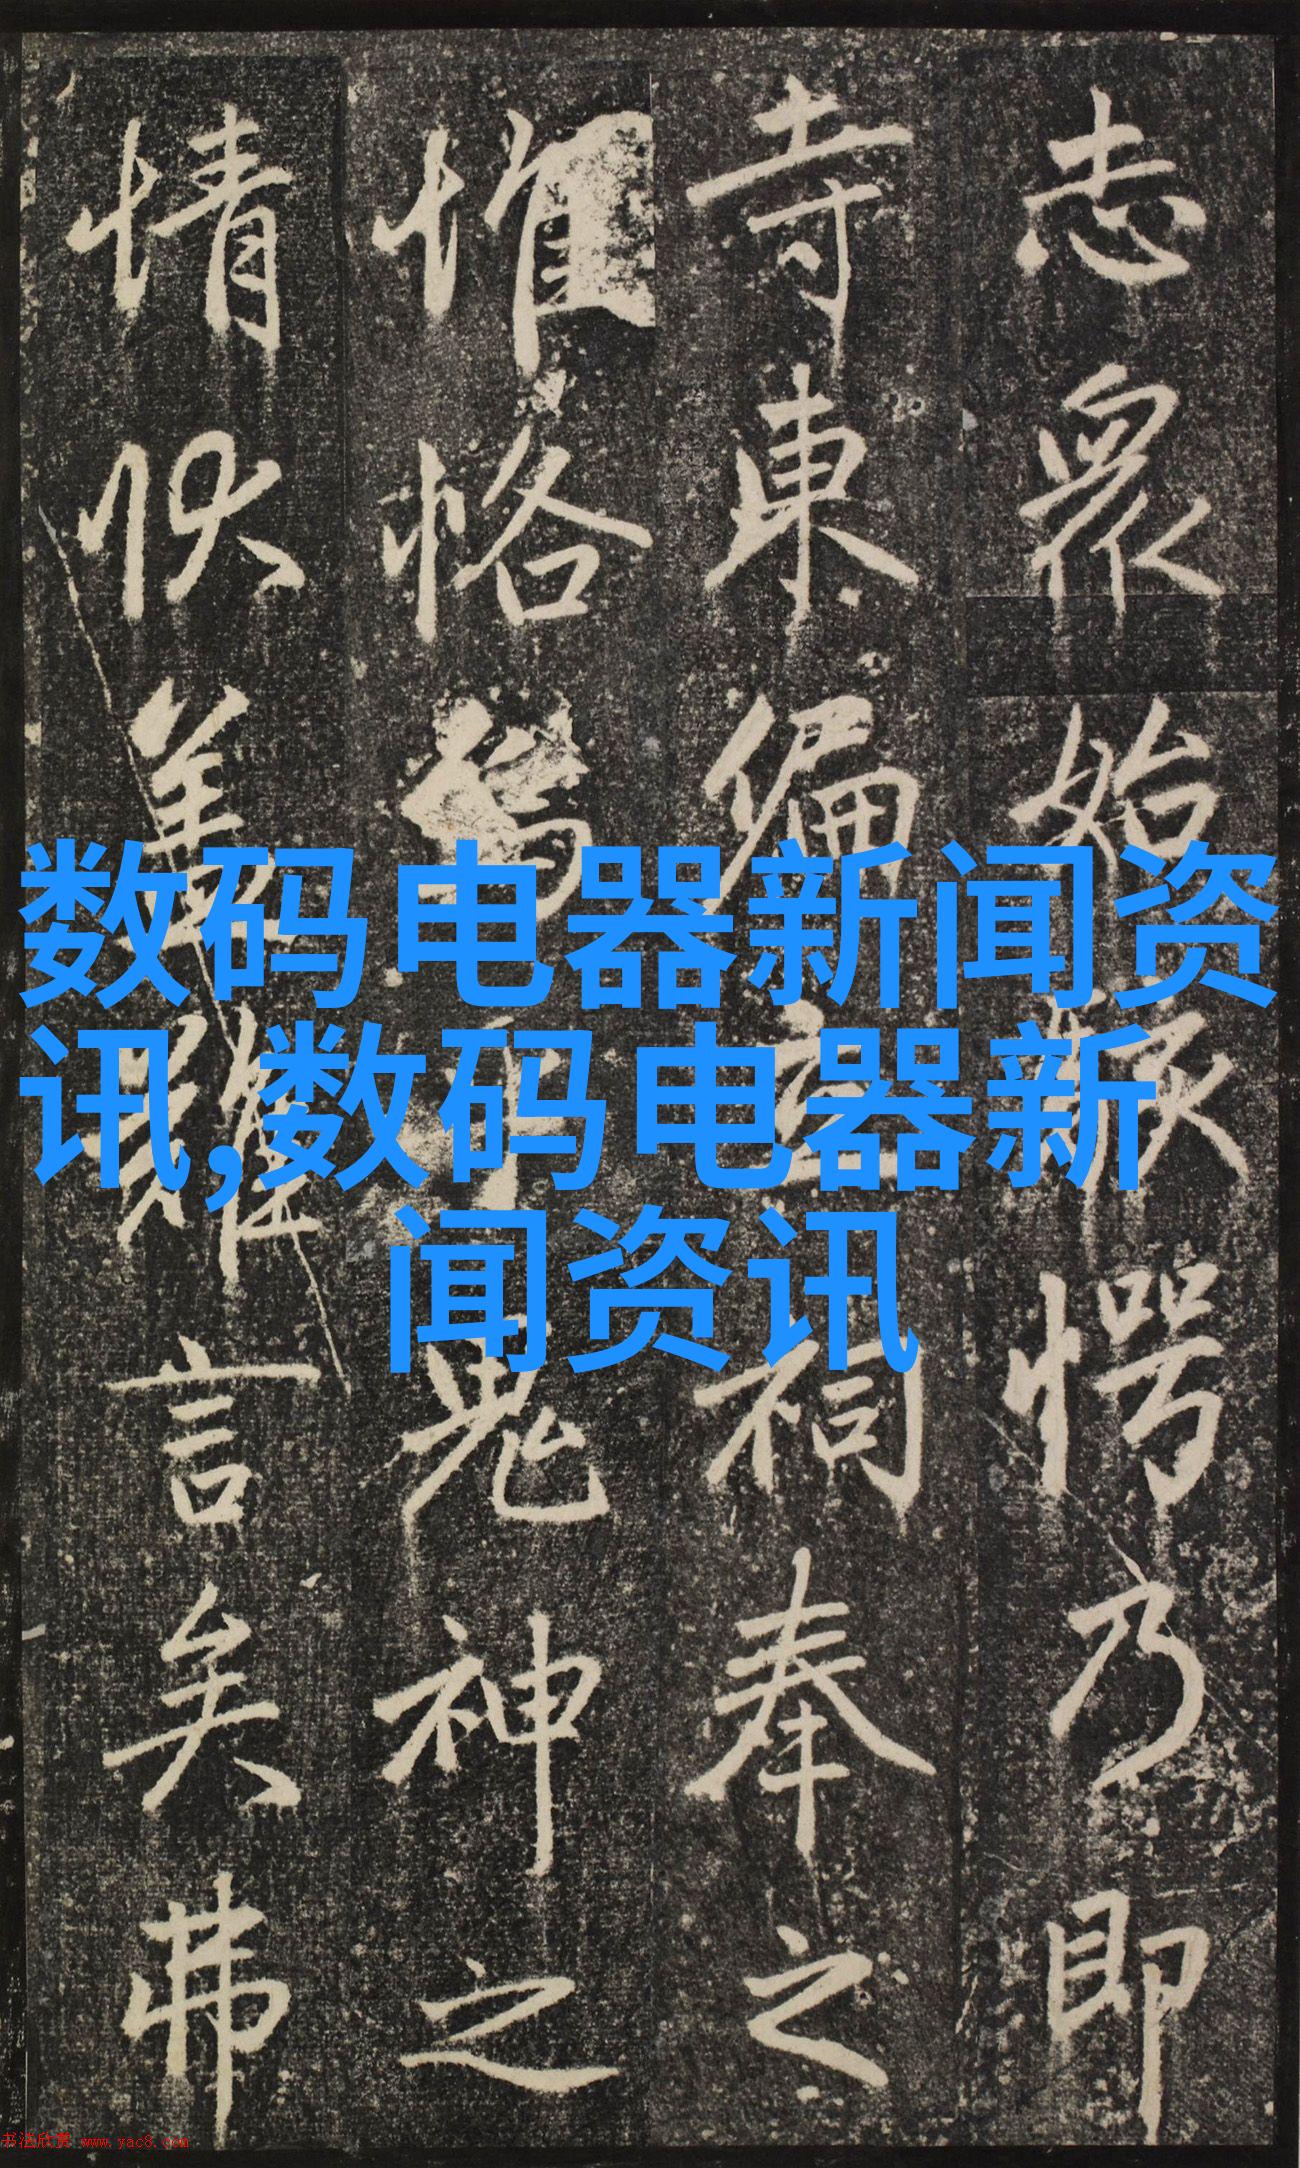 志衆始駭愕乃即
寺東偏立祠奉之
惟恪焉鬼神之
情狀蓋難言矣弗
数码电器新闻资
讯,数码电器新
闻资讯
书法欣赏 www.yac8.com